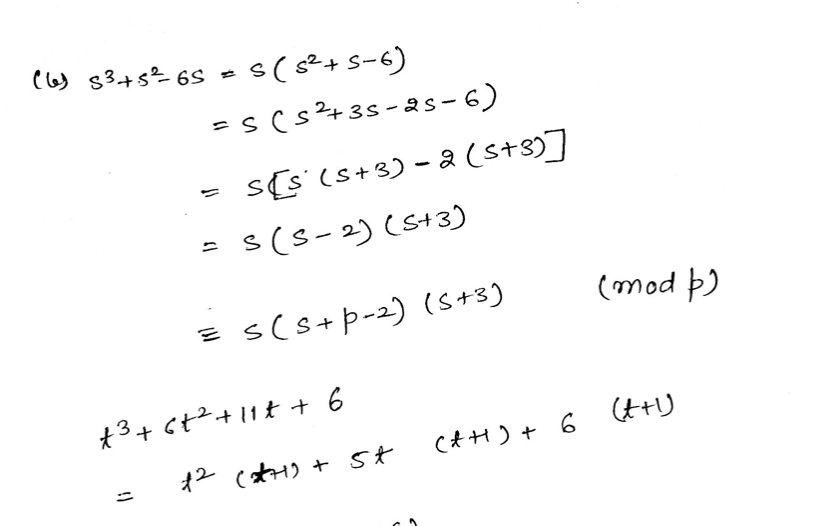 (b) s³+s²-6s = s(s²+s-6)
= s(s²+3s-2s-6)
= s[s(s+3)-2(s+3)]
= s(s-2)(s+3)
≡ s(s+p-2)(s+3) (mod p)
t³+6t²+11t+6
= t²(t+1)+5t(t+1)+6(t+1)